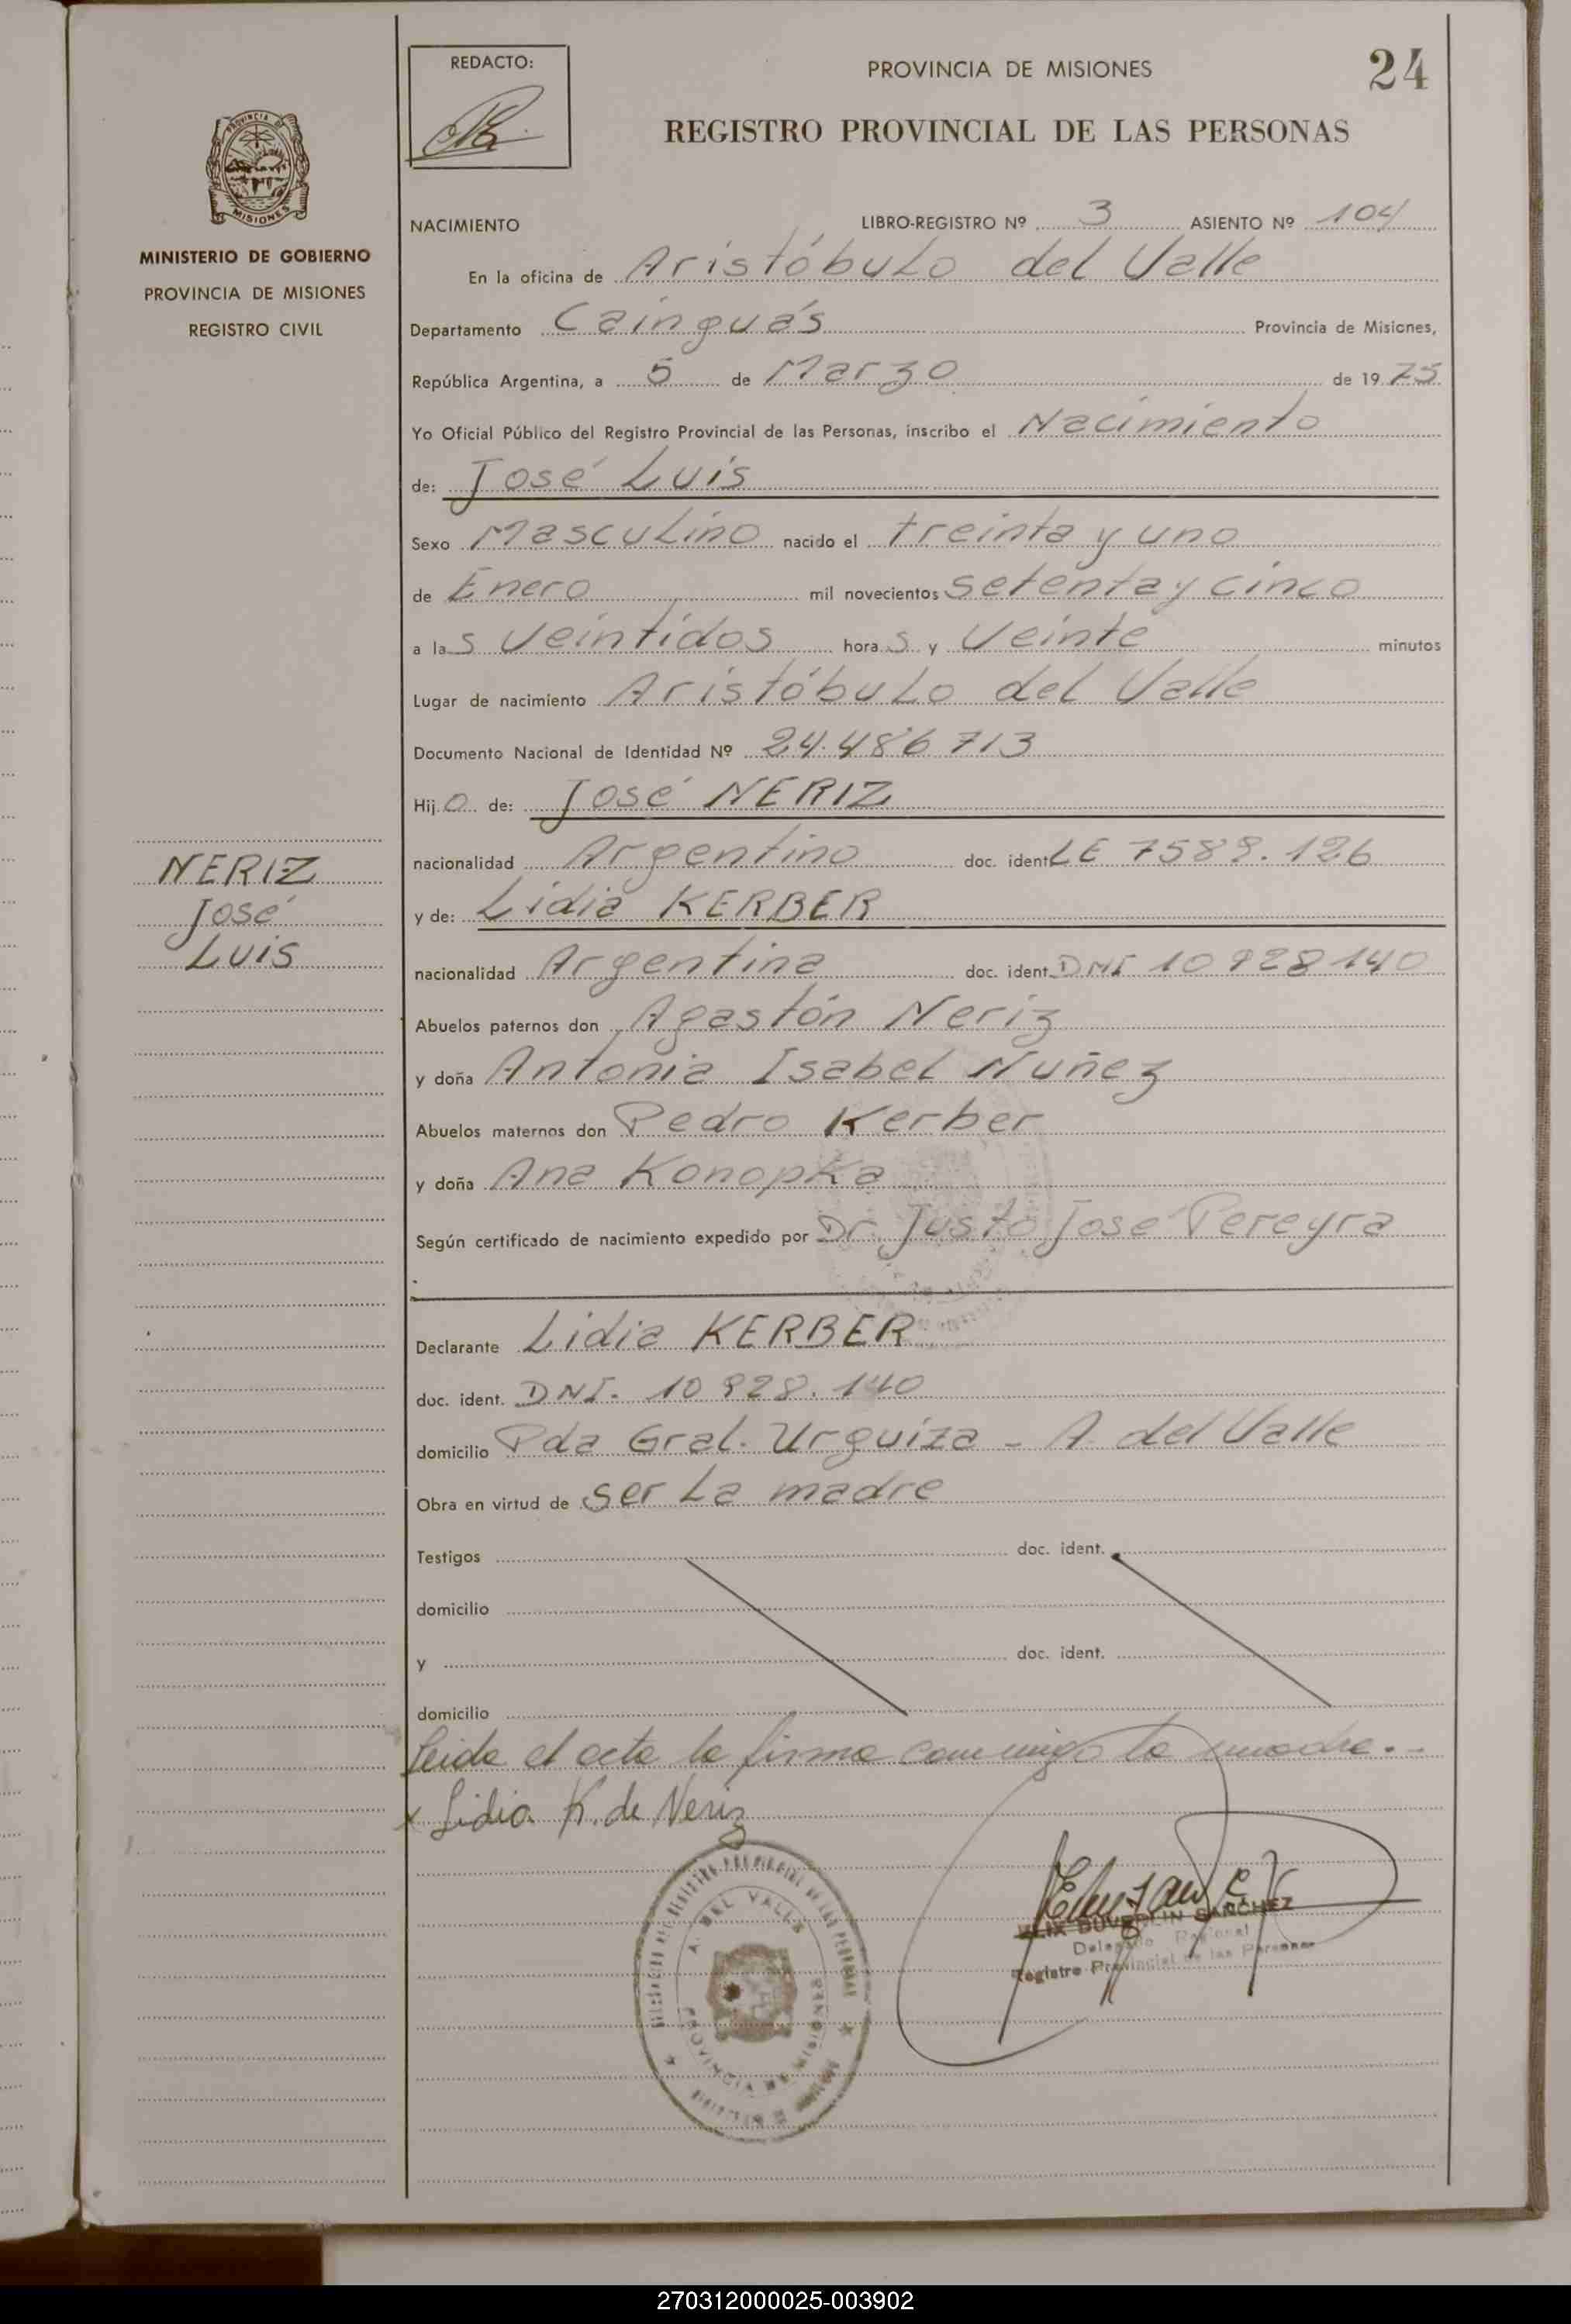 24
REDACTO:
PROVINCIA DE MISIONES
REGISTRO PROVINCIAL DE LAS PERSONAS
PROVINCIA DE
MISIONES
MINISTERIO DE GOBIERNO
PROVINCIA DE MISIONES
REGISTRO CIVIL
NACIMIENTO LIBRO-REGISTRO Nº 3 ASIENTO Nº 104
En la oficina de Aristóbulo del Valle
Departamento Cainguás Provincia de Misiones,
República Argentina, a 5 de Marzo de 1975
Yo Oficial Público del Registro Provincial de las Personas, inscribo el Nacimiento
de: José Luis
Sexo Masculino nacido el treinta y uno
de Enero mil novecientos setenta y cinco
a las veintidos horas y veinte minutos
Lugar de nacimiento Aristóbulo del Valle
Documento Nacional de Identidad Nº 24.486 713
Hijo de: José NERIZ
nacionalidad Argentino doc. ident LE 7589.126
y de: Lidia KERBER
nacionalidad Argentina doc. ident. DNI 10 928 140
Abuelos paternos don Agastón Neriz
y doña Antonia Isabel Nuñez
Abuelos maternos don Pedro Kerber
y doña Ana Konopka
Según certificado de nacimiento expedido por Dr. Justo José Pereyra
NERIZ
José
Luis
Declarante Lidia KERBER
doc. ident. DNI. 10 928. 140
domicilio Pda Gral. Urquiza - A. del Valle
Obra en virtud de ser la madre
Testigos doc. ident.
domicilio
y doc. ident.
domicilio
Leida el acta la firma conmigo la madre.-
x Lidia K. de Neriz
A. DEL VALLE
PROVINCIA DE MISIONES
SANCHEZ
Delegado Regional
Registro Provincial de las Personas
270312000025-003902